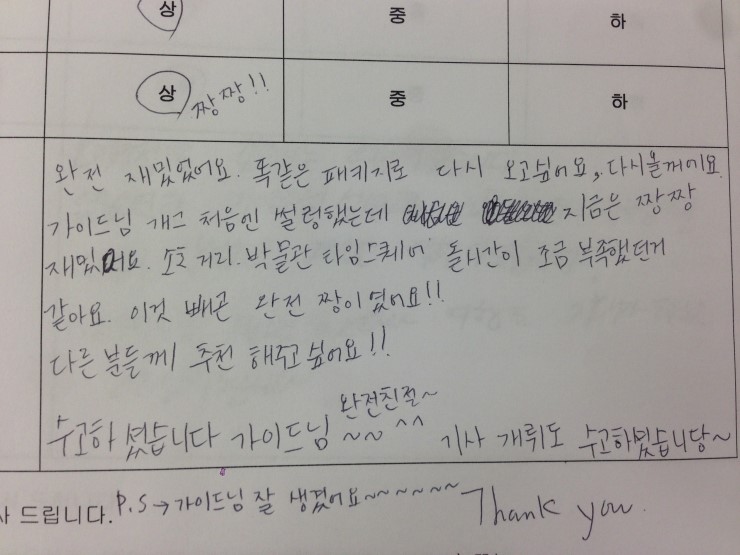 상 중 하
상 짱짱!! 중 하
완전 재밌었어요. 똑같은 패키지로 다시 오고싶어요, 다시올게요
가이드님 개그 처음엔 썰렁했는데 지금은 짱짱
재밌어요. 소호 거리. 박물관 타임스퀘어 돌시간이 조금 부족했던거
같아요. 이것 빼곤 완전 짱이였어요!!
다른 분들께 추천 해주고 싶어요!!
완전친절~
수고하셨습니다 가이드님 ~~ ^^ 기사 개뤼도 수고하셨습니당~
드립니다. P.S → 가이드님 잘 생겼어요~~~~~~ Thank you.